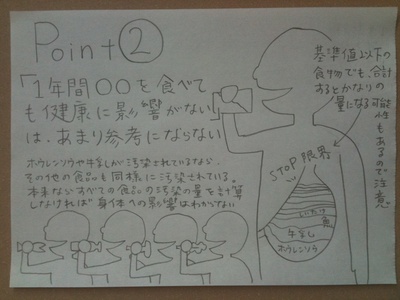 Point②
「1年間〇〇を食べて
も健康に影響がない」
は、あまり参考にならない
ホウレンソウや牛乳が汚染されているなら、
その他の食品も同様に汚染されている。
本来ならすべての食品の汚染の量を計算
しなければ身体への影響はわからない
基準値以下の
食物でも、合計
するとかなりの
量になる可能
性もあるので注意
STOP限界
魚
牛乳
ホウレンソウ